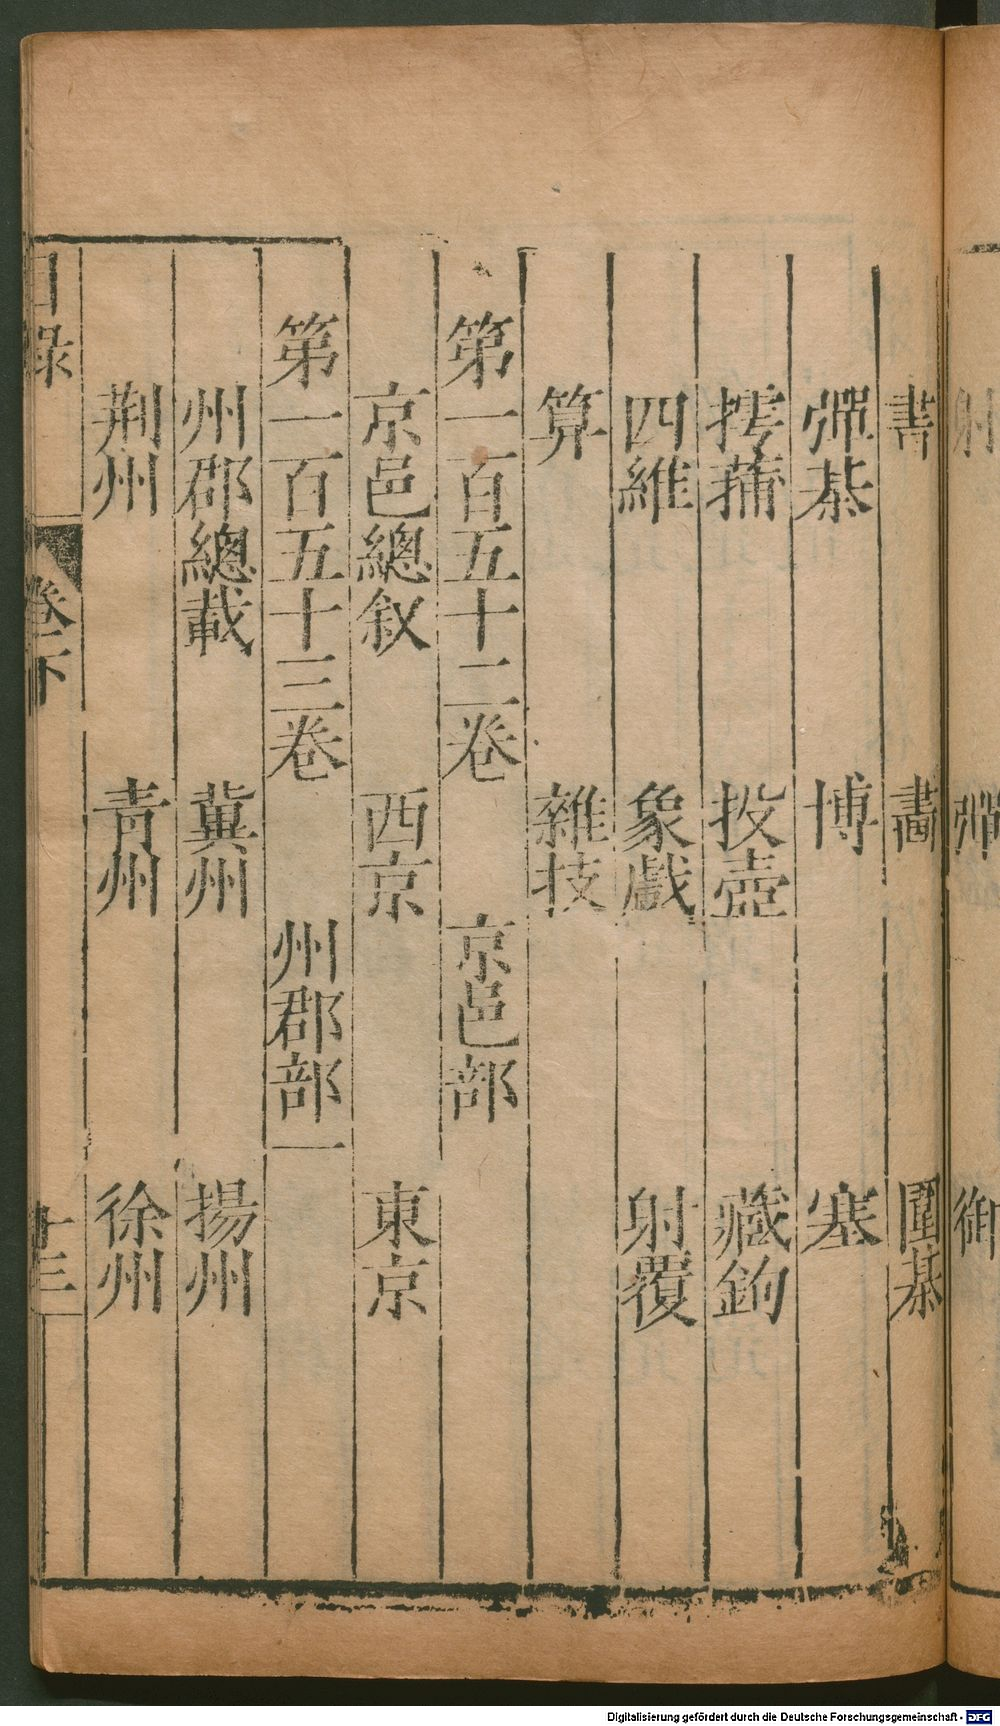 射 彈 御
書 畵 圍棊
彈棊 博 塞
摴蒱 投壺 藏鉤
四維 象戲 射覆
算 雜技
第一百五十二卷 京邑部
京邑總叙 西京 東京
第一百五十三卷 州郡部一
州郡總載 冀州 揚州
荆州 青州 徐州
目錄 卷下 十三
Digitalisierung gefördert durch die Deutsche Forschungsgemeinschaft - DFG